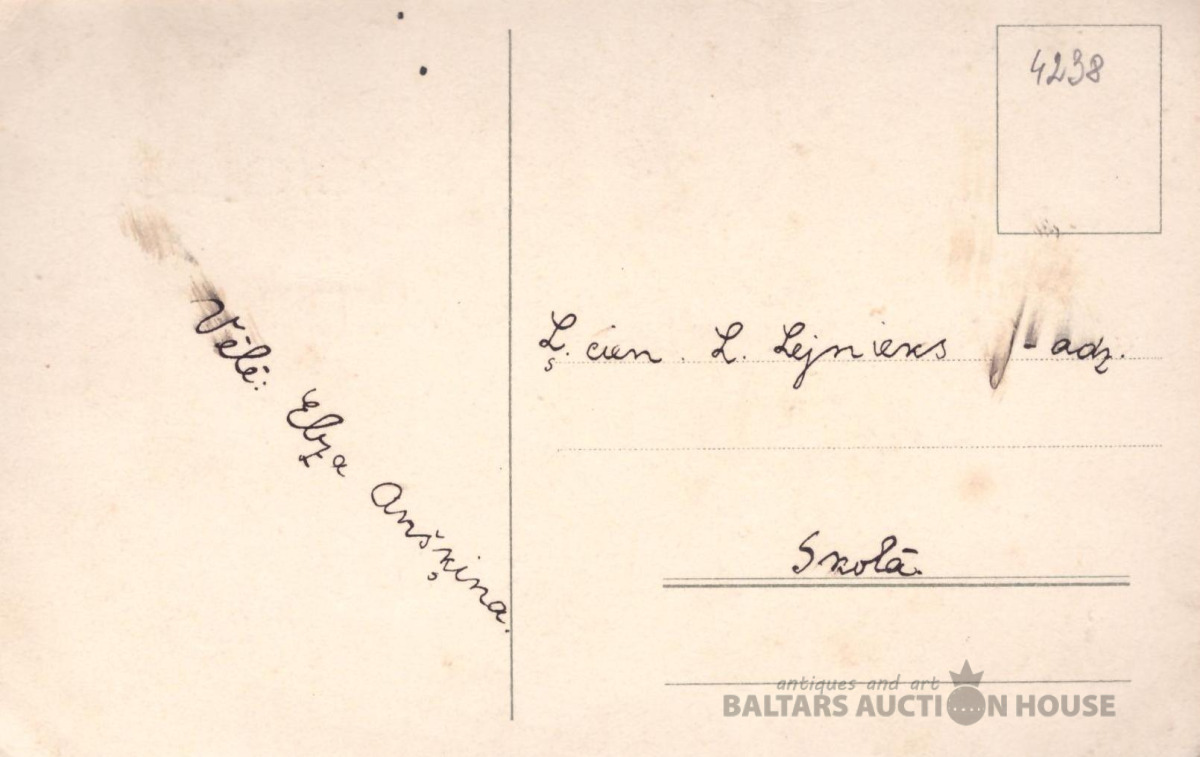 4238
Vēlē: Elza Anšķina.
Ļ. cien. L. Lejnieks J-adz.
Skolā.
antiques and art
BALTARS AUCTION HOUSE